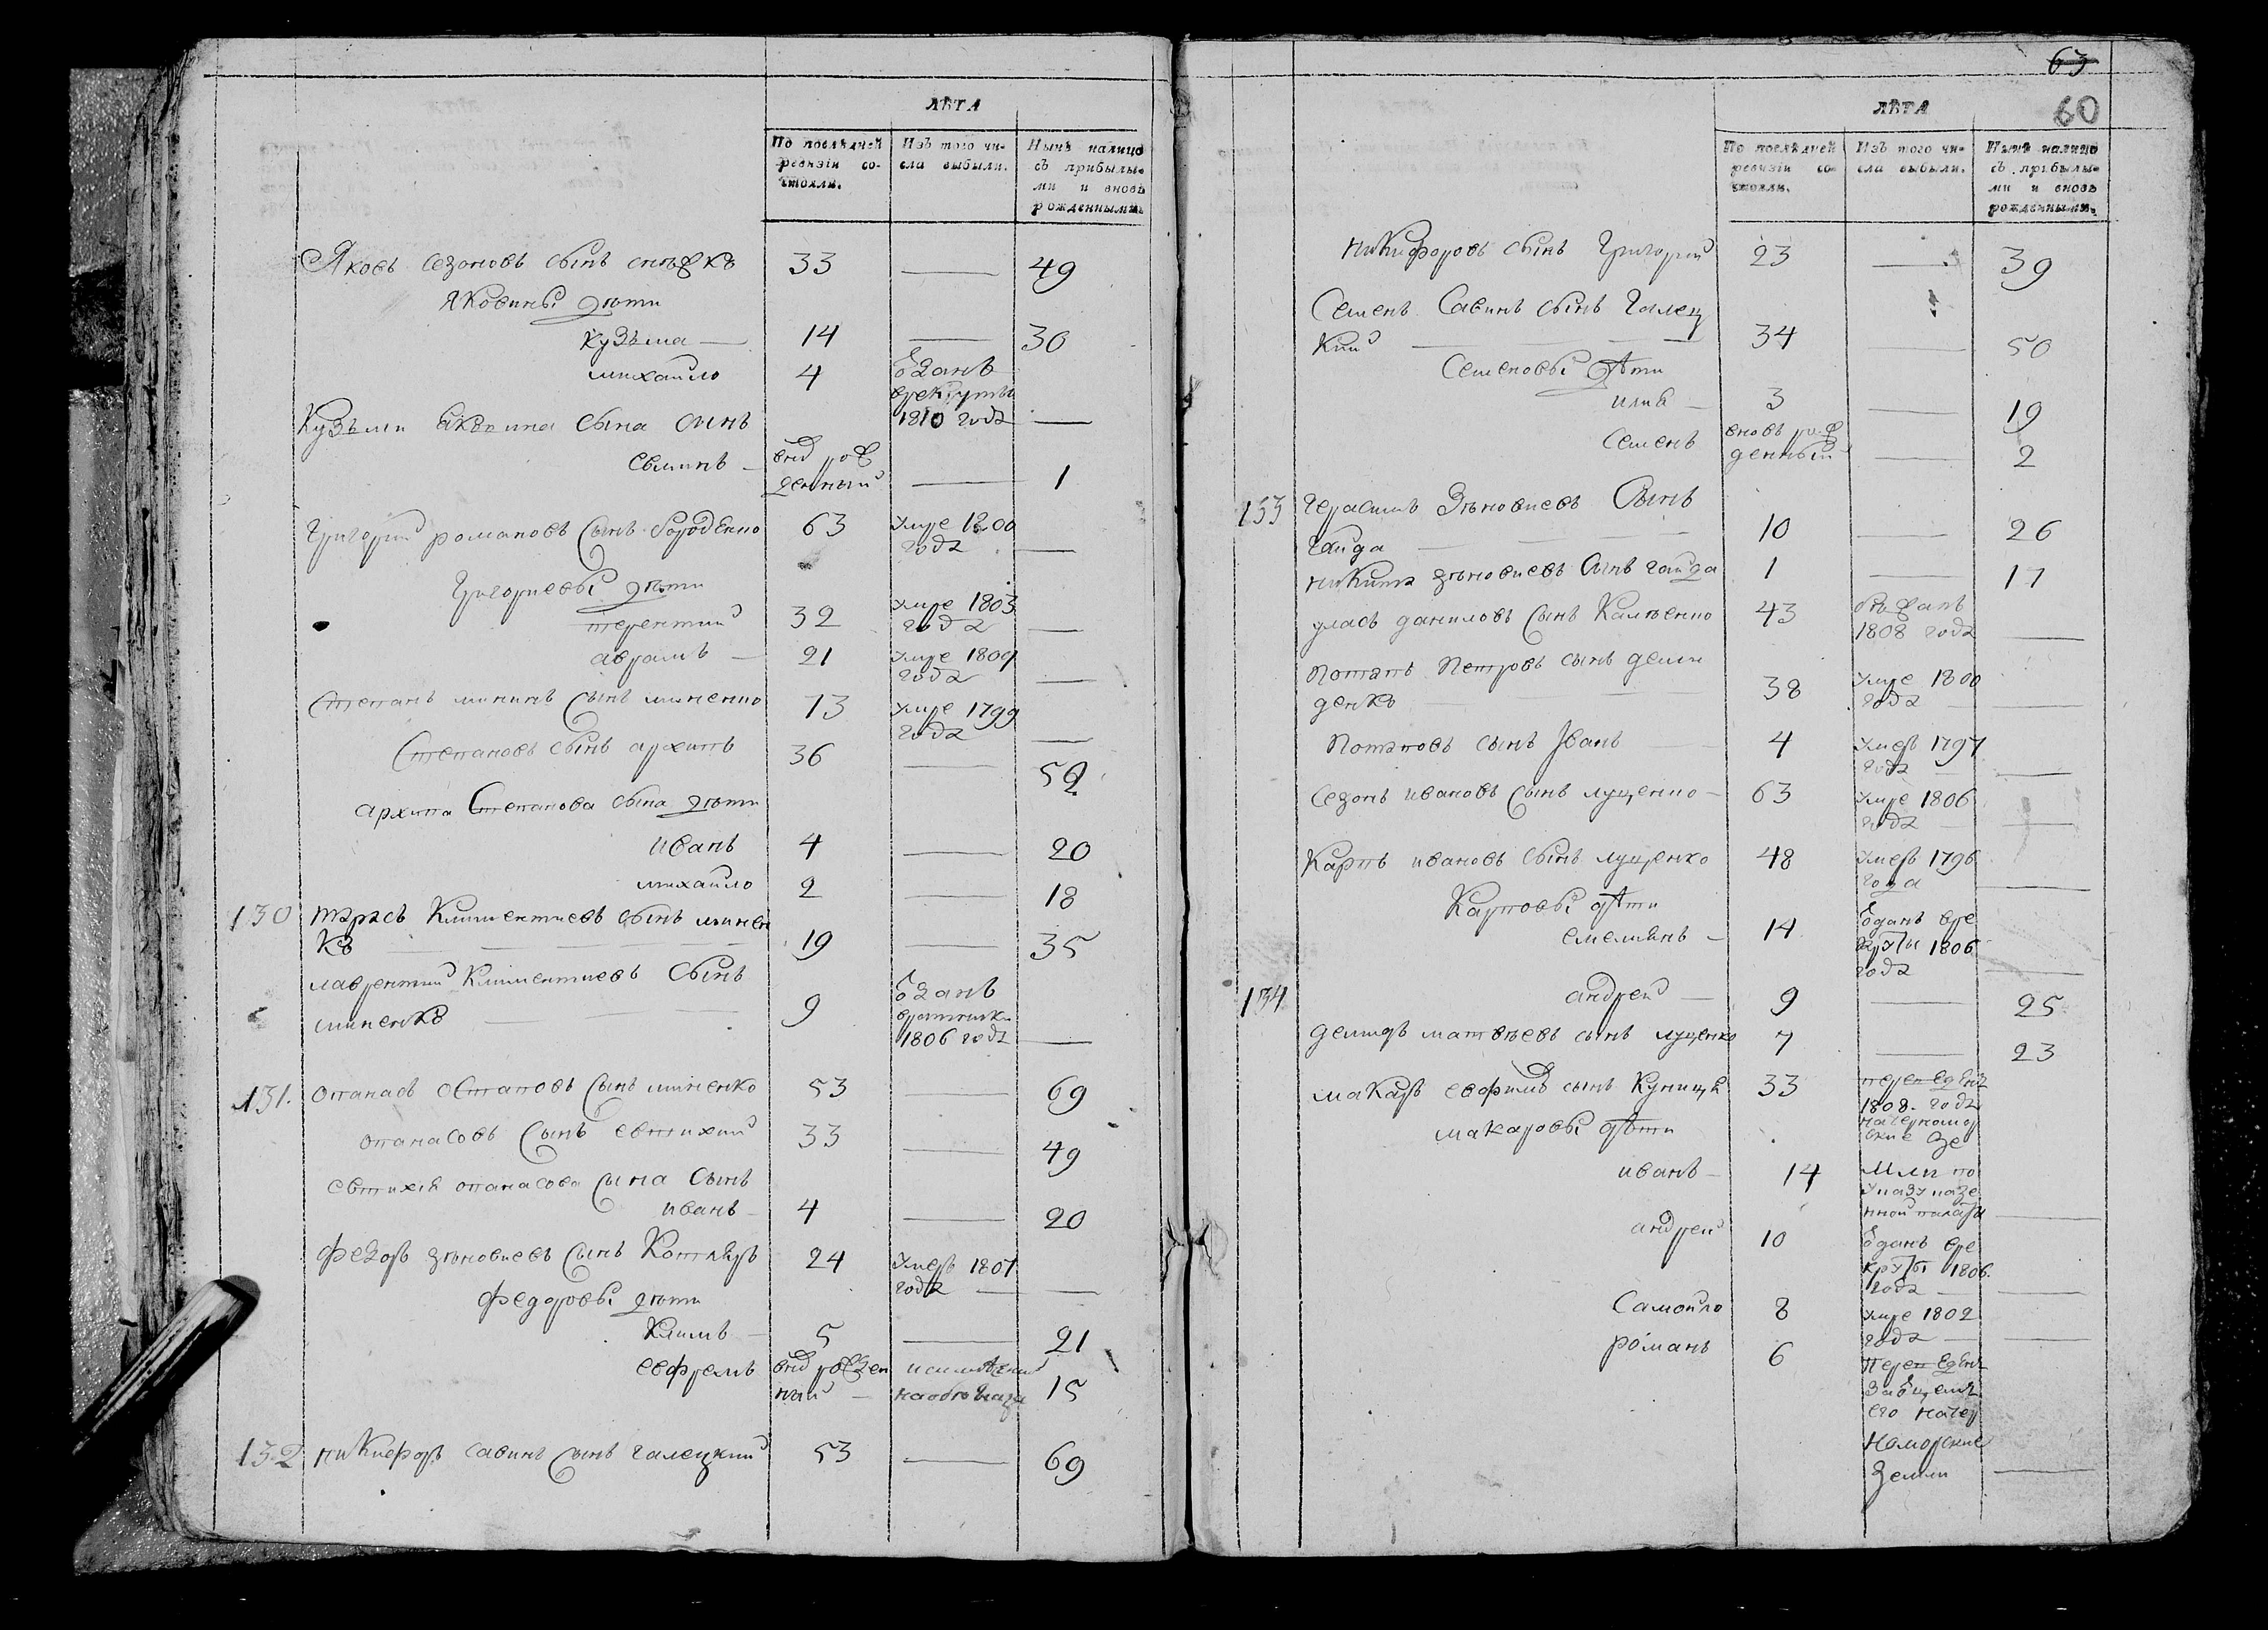 ЛѢТА
По послѣдней ревизіи состояли.
Изъ того числа выбыли.
Нынѣ налицо съ прибылыми и вновь рожденными.
Яковъ Созоновъ сынъ 33 — 49
Яковины дѣти
Кузьма — 14 — 30
михайло 4 зданъ
врекруты
1810 года —
Кузьмы сына сынъ
вно рож
денный — 1
Григорій романовъ сынъ бороденко 63 умре 1800
года —
Григориевы дѣти
терентий 32 умре 1803
года —
аврамъ — 21 умре 1809
года —
Степанъ мининъ сынъ миненко 73 умре 1799
года —
Степановъ сынъ архипъ 36 — 52
архипа Степанова сына дѣти
иванъ 4 — 20
михайло 2 — 18
130 тарасъ Климентиевъ сынъ минен
ко — 19 — 35
лаврентий Климентиевъ сынъ
миненко — 9 зданъ
1806 года —
131. опанасъ Остаповъ сынъ миненко 53 — 69
опанасовъ сынъ евтихий 33 — 49
евтихія опанасова сына сынъ
иванъ — 4 — 20
Федоръ зѣновиевъ сынъ Котляръ 24 умеръ 1801
года —
Федоровы дѣти
Климъ — 5 — 21
евфремъ вно рожден
ный — 15
132 никифоръ савинъ сынъ галецкий 53 — 69
63
60
ЛѢТА
По послѣдней ревизіи состояли.
Изъ того числа выбыли.
Нынѣ налицо съ прибылыми и вновь рожденными.
никифоровъ сынъ Григорий 23 — 39
Семенъ Савинъ сынъ Галец
кий — 34 — 50
Семеновы дѣти
илия — 3 — 19
Семенъ вновь рож
денный — 2
133 Герасимъ Зѣновиевъ Сынъ
гайда — 10 — 26
никита зѣновиевъ сынъ гайда 1 — 17
уласъ даниловъ сынъ Калюенко 43
1808 года —
Потапъ Петровъ сынъ деми
денко — 38 умре 1800
года —
Потаповъ сынъ Іванъ — 4 умеръ 1797
года —
Созонъ ивановъ сынъ лущенко — 63 умре 1806
года —
Карпъ ивановъ сынъ лущенко 48 умеръ 1796
года —
Карповы дѣти
емелиянъ — 14 зданъ вре
круты 1806
года —
134 андрей — 9 — 25
демидъ матвѣевъ сынъ лущенко 7 — 23
макаръ евфимовъ сынъ Куница 33 переведенъ
1808. года
на черномор
ские зе
макаровы дѣти
иванъ — 14 мли по
указу казе
нной палаты —
андрей 10 зданъ вре
круты 1806.
года —
Самойло 8 умре 1802
года —
романъ 6 переведенъ
его на чер
номорские
земли —